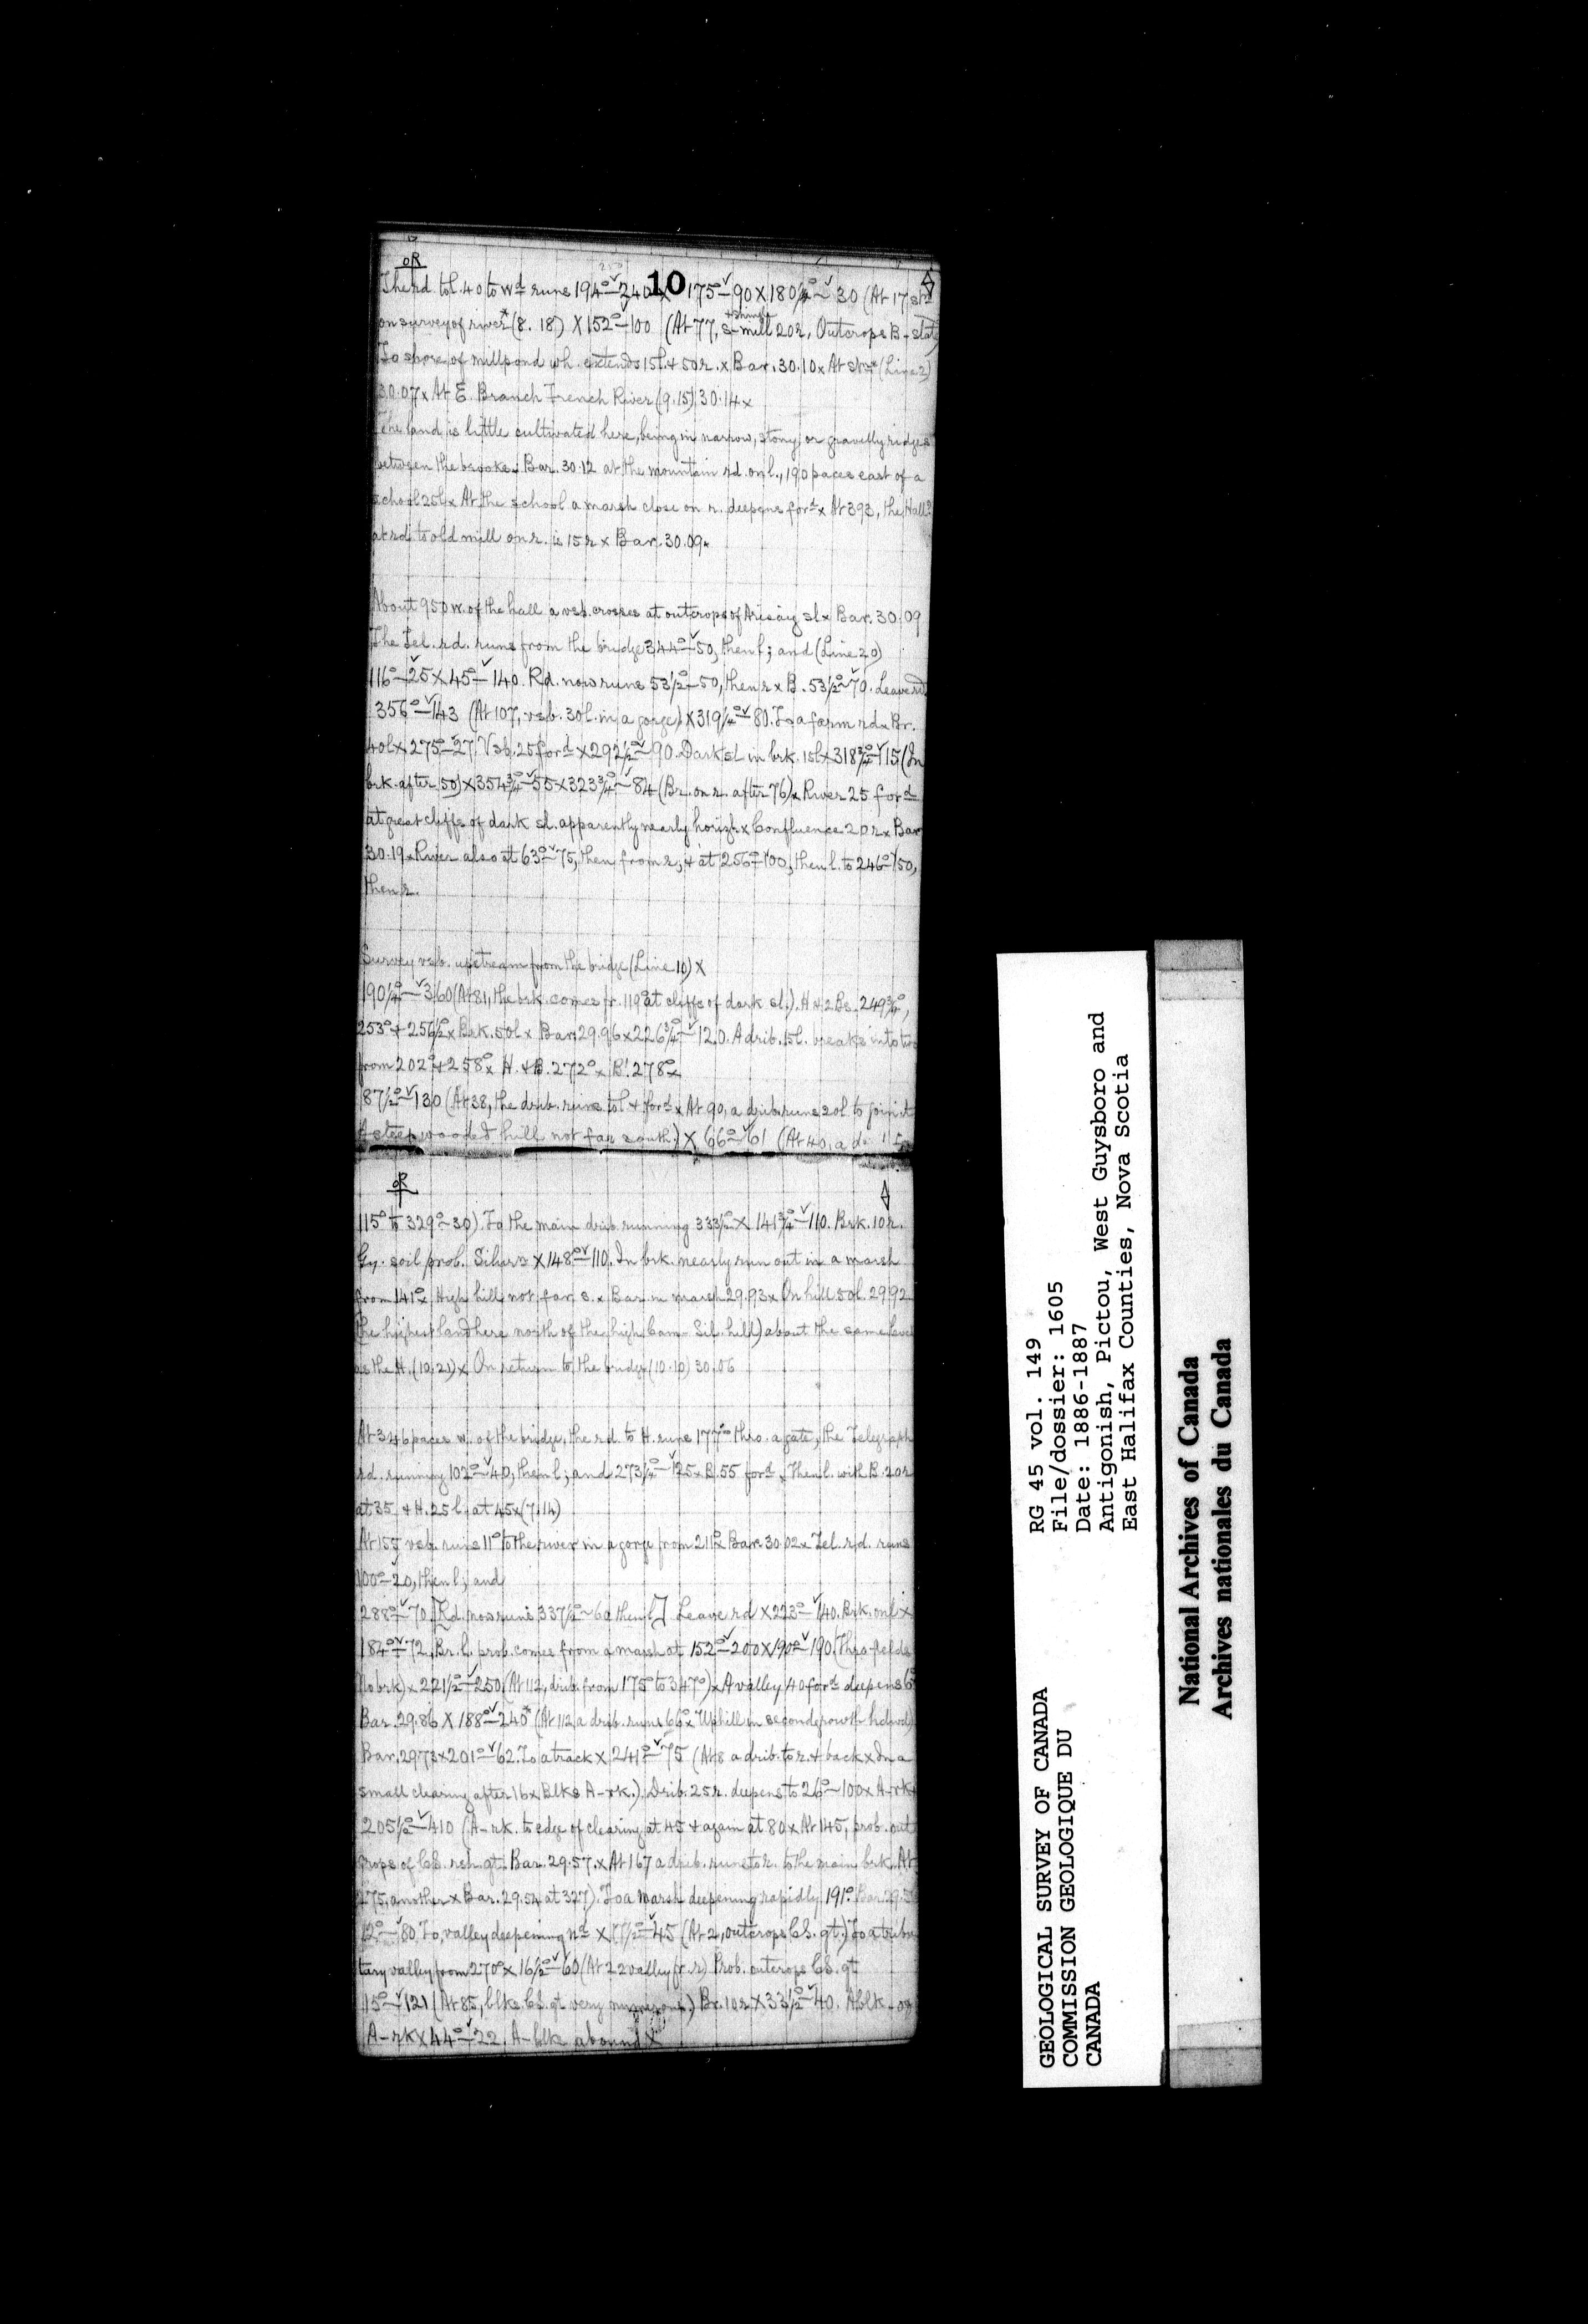 10
The rd. to l. 40 to wd runs 194°–240 X 175°–90 X 180½°~30 (At 17 stn
on survey of river* (8.18) X 152°–100 (At 77, s-mill + shingle 20r, Outcrops B-slate)
To shore of millpond wh. extends 15l + 50r. x Bar. 30.10 x At stn* (Line 2)
30.07 x At E. Branch French River (9.15) 30.14 x
The land is little cultivated here, being in narrow, stony or gravelly ridges
between the brooks. Bar. 30.12 at the mountain rd. on l., 190 paces east of a
school 25l x At the school a marsh close on r. deepens ford x At 393, the Hall
at rd. to old mill on r. is 15r x Bar. 30.09.
About 950 w. of the hall a vsb. crosses at outcrops of Arisaig sl x Bar. 30.09
The Tel. rd. runs from the bridge 344°–50, then l; and (Line 20)
116°–25 X 45°–140. Rd. now runs 53½°–50, then r x B. 53½°~70. Leave rd
356°–143 (At 107, vsb. 30l. in a gorge) X 319¼°–80. To a farm rd x Br.
40l X 275°–27. Vsb. 25 ford X 292½°~90. Dark sl. in brk. 15l X 318¾°–115 (In
brk. after 50) X 354¾°–55 X 323¾°~84 (Br. on r. after 76) x River 25 ford
at great cliffs of dark sl. apparently nearly horizl. x Confluence 20r x Bar.
30.19 x River also at 63°~75, then from r; + at 256°–100, then l. to 246°–150,
then r.
Survey vsb. upstream from the bridge (Line 10) X
190¼°–360 (At 81, the brk. comes fr. 119° at cliffs of dark sl.). H + 2 Bs. 249¾°,
253° + 256½° x Brk. 50l x Bar. 29.96 x 226¾°–120. A drib. 15l. breaks into two
from 202° + 258° x H. + B. 272° x B! 278° x
187½°–130 (At 38, the drib. runs to l + ford x At 90, a drib. runs 20l to join it
A steep wooded hill not far south.) X 66°~61 (At 40, a
115° to 329°~30). To the main drib. running 333½° X 141¾°–110. Brk. 10r.
Gy. soil prob. Silurn X 148°–110. In brk. nearly run out in a marsh
from 141° x High hill not far s. x Bar. in marsh 29.93 x On hill 50l. 29.92
(the highest land here north of the high Cam-Sil. hill) about the same level
as the H. (10.21) x On return to the bridge (10.10) 30.06
At 346 paces w. of the bridge, the rd. to H. runs 177° thro. a gate, the Telegraph
rd. running 102°~40, then l; and 273¼°–125 x B. 55 ford. Then l. with B. 20r
at 35 + H. 25l. at 45 x (7.14)
At 155 vsb. runs 11° to the river in a gorge from 211° x Bar. 30.02 x Tel. rd. runs
100°–20, then l; and
288°–70. [Rd. now runs 337½°~60 then l] Leave rd X 223°–140. Brk. on l X
184°–72. Br. l. prob. comes from a marsh at 152°–200 X 190°–190 (Thro fields
No brk) x 221½°–250 (At 112, drib. from 175° to 347°) x A valley 40 ford deepens 6°
Bar. 29.86 X 188°–240* (At 112 a drib. runs 66° x Uphill in second growth hdwd)
Bar. 29.73 x 201°–62. To a track X 241°–75 (At 8 a drib. to r. + back x In a
small clearing after 16 x Blks A-rk.). Drib. 25r. deepens to 26°~100 x A-rk x
205½°–410 (A-rk. to edge of clearing at 45 + again at 80 x At 145, prob. out
crops of CS. rsh. qt. Bar. 29.57. x At 167 a drib. runs to r. to the main brk. At
275, another x Bar. 29.54 at 327). To a marsh deepening rapidly 191°.
12°–80. To valley deepening nd X 17½°–45 (At 2, outcrops CS. qt.) To a tribu
tary valley from 270° X 16½°–60 (At 22 valley fr. r.) Prob. outcrops CS. qt
15°–121 (At 85, blks. CS. qt very numerous) Br. 10r X 33½°–40. A blk. of
A-rk X 44°–22. A-blks abound X
RG 45 vol. 149
File/dossier: 1605
Date: 1886-1887
Antigonish, Pictou, West Guysboro and
East Halifax Counties, Nova Scotia
GEOLOGICAL SURVEY OF CANADA
COMMISSION GEOLOGIQUE DU
CANADA
National Archives of Canada
Archives nationales du Canada